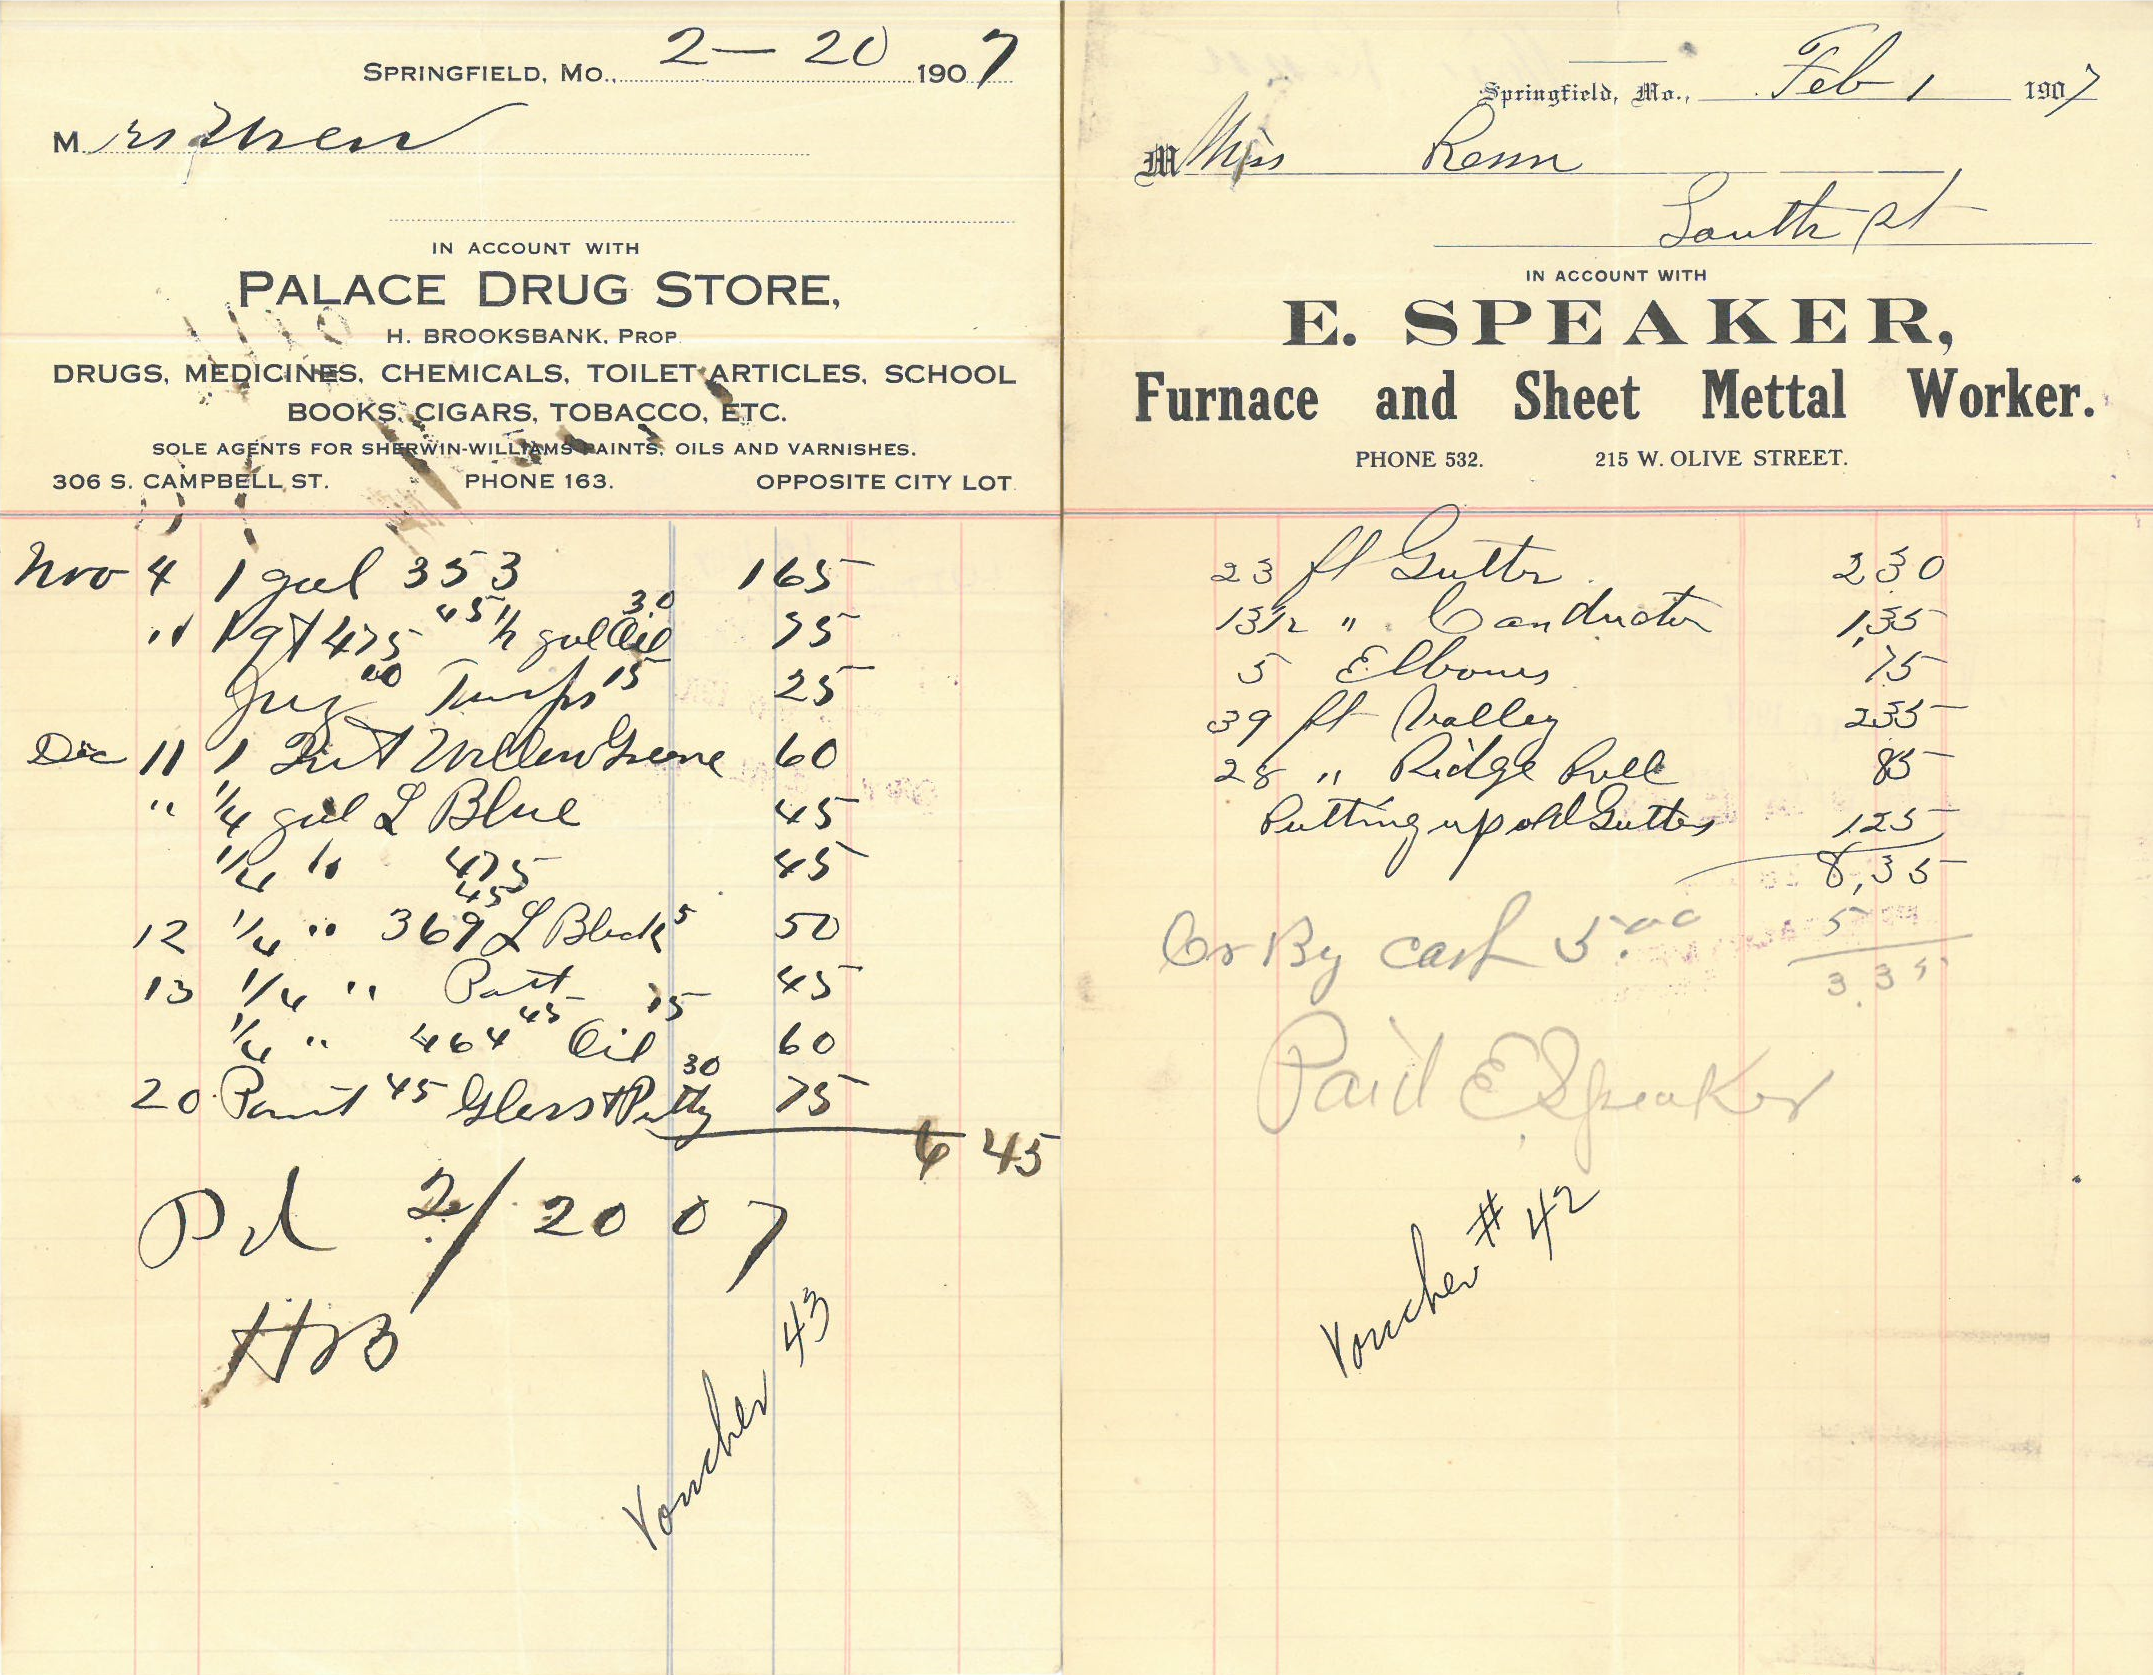 SPRINGFIELD, MO., 2-20 1907
Mrs Wren
IN ACCOUNT WITH
PALACE DRUG STORE,
H. BROOKSBANK, PROP.
DRUGS, MEDICINES, CHEMICALS, TOILET ARTICLES, SCHOOL
BOOKS, CIGARS, TOBACCO, ETC.
SOLE AGENTS FOR SHERWIN-WILLIAMS PAINTS, OILS AND VARNISHES.
306 S. CAMPBELL ST. PHONE 163. OPPOSITE CITY LOT
Nov 4 1 gal 353 165
" 1 qt 475 45 1/2 gal Oil 30 75
Jug 10 Turps 15 25
Dec 11 1 Willow Greene 60
" 1/4 gal L Blue 45
1/4 " 475 45
12 1/4 " 369 45 L Black 5 50
13 1/4 " 45
1/4 " 464 45 Oil 15 60
20 Paint 45 Glass & Putty 30 75
6 45
Pd 2/20 07
HB
Voucher 43
Springfield, Mo., Feb 1 1907
M Miss Renn
South St
IN ACCOUNT WITH
E. SPEAKER,
Furnace and Sheet Mettal Worker.
PHONE 532. 215 W. OLIVE STREET.
23 ft Gutter 230
13 1/2 " Conductor 1,35
5 Elbows 75
39 ft Valley 235
28 " Ridge Roll 85
Putting up old Gutters 125
8,35
Cr By cash 5.00 5
3.35
Paid E Speaker
Voucher # 42